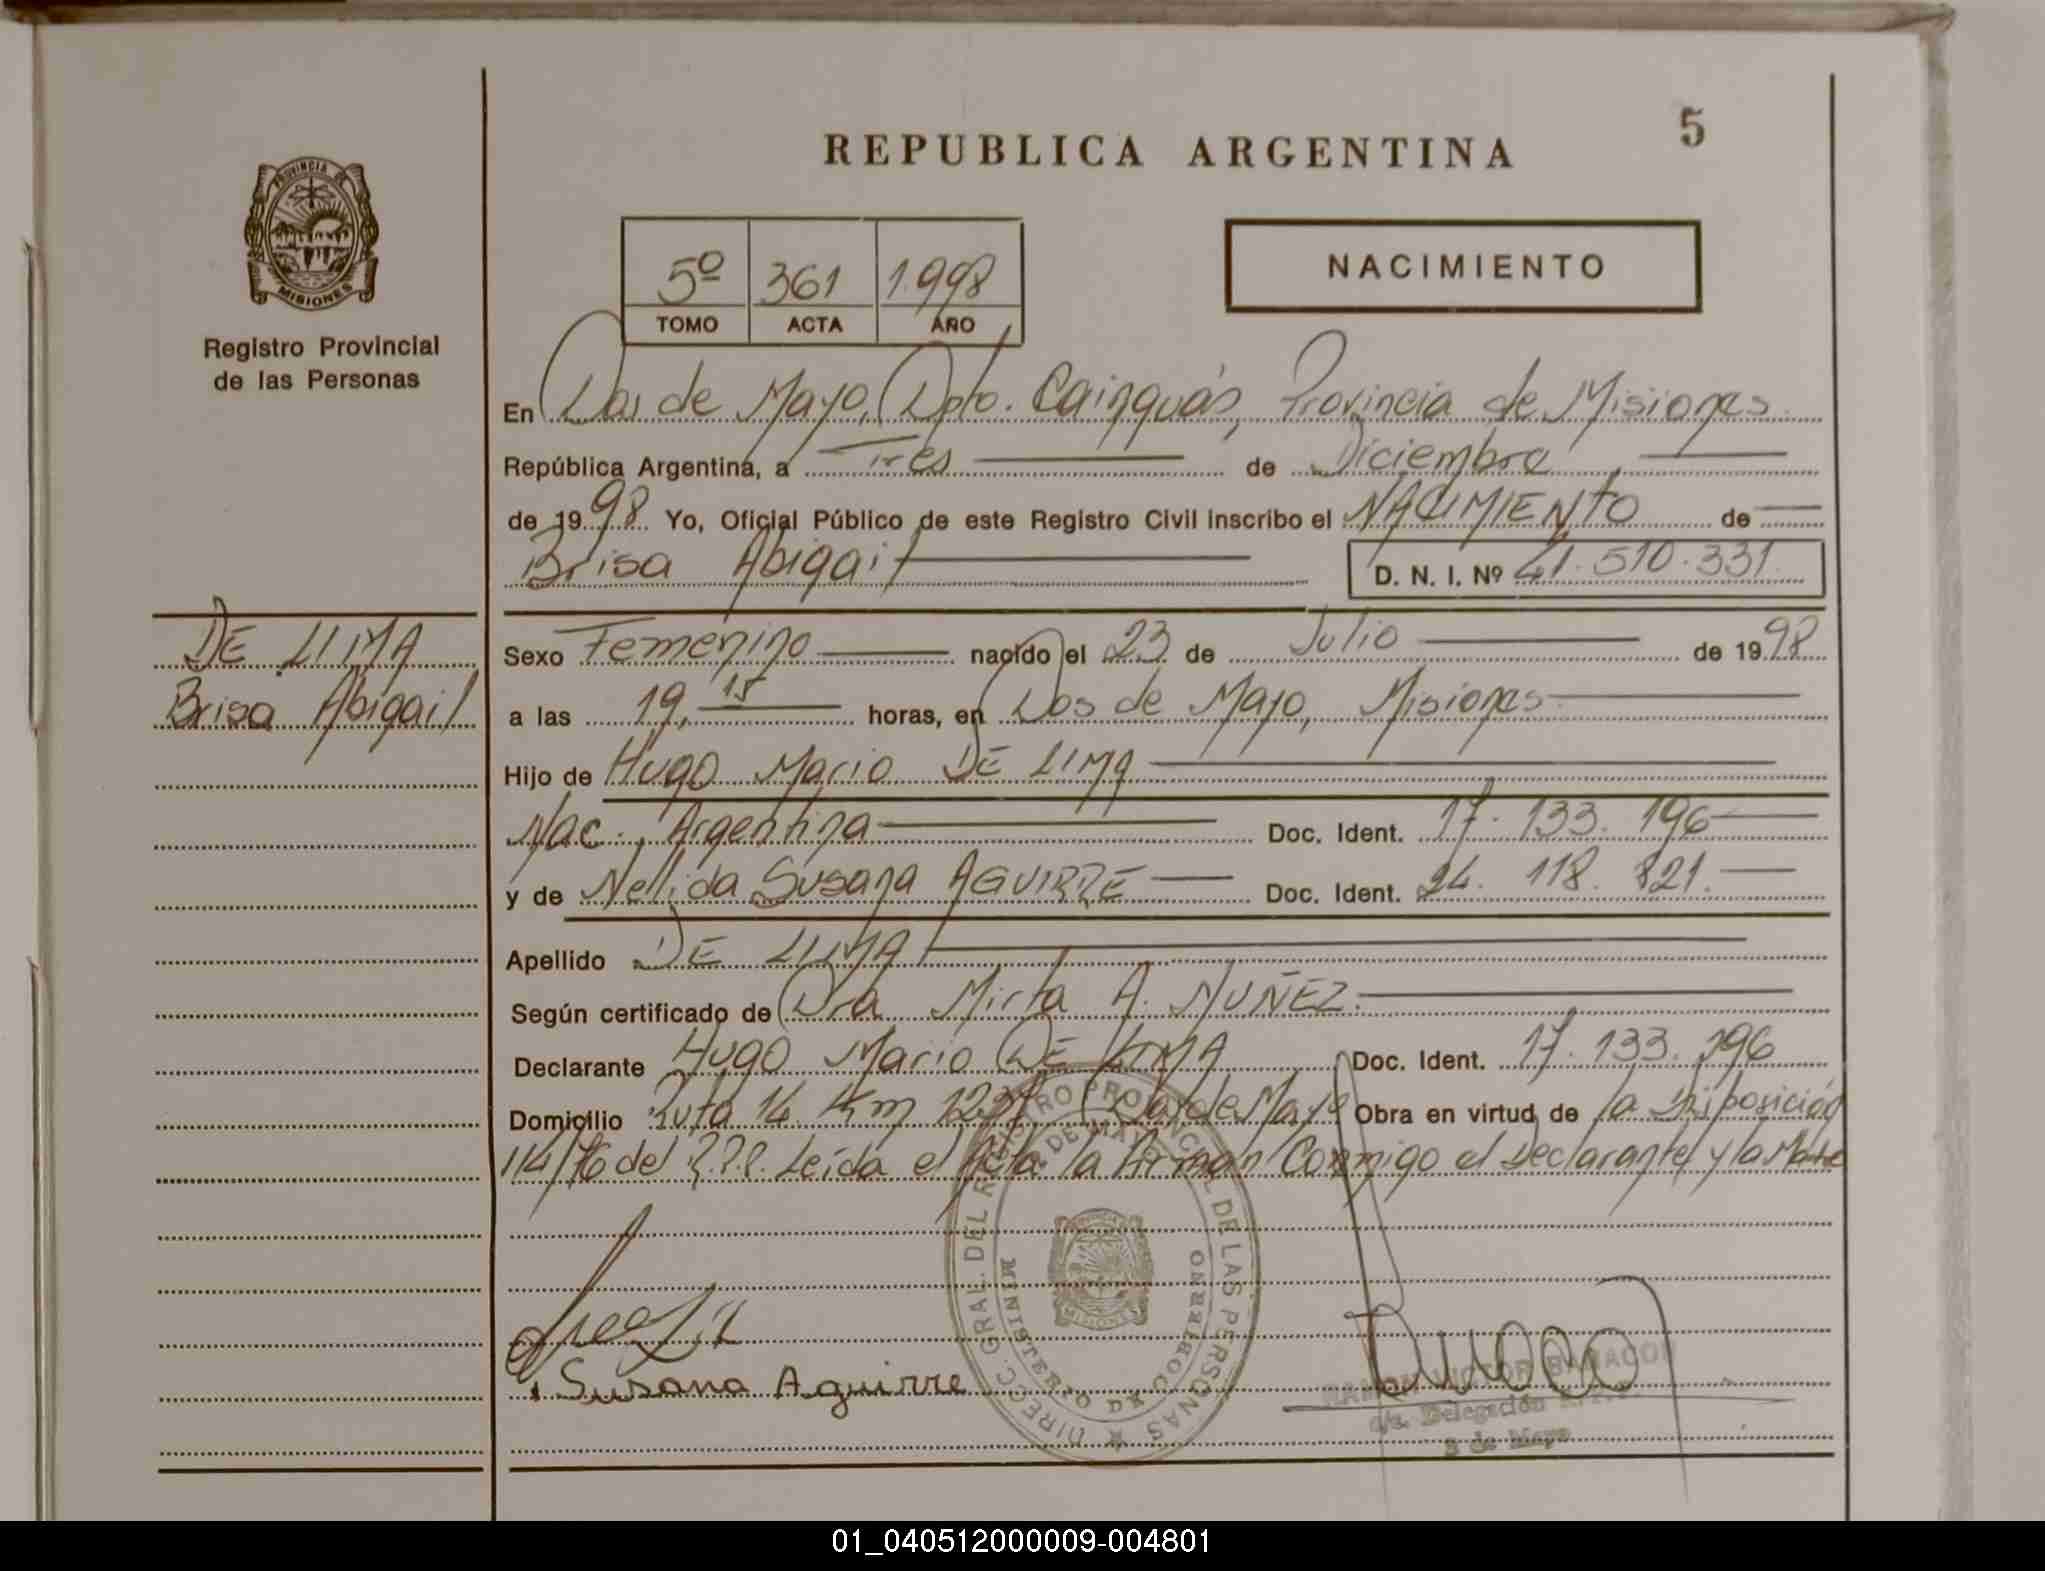 REPUBLICA ARGENTINA
5
PROVINCIA DE
MISIONES
Registro Provincial
de las Personas
5º 361 1.998
TOMO ACTA AÑO
NACIMIENTO
En Dos de Mayo, Dpto. Cainguás, Provincia de Misiones
República Argentina, a Tres de Diciembre
de 1998 Yo, Oficial Público de este Registro Civil inscribo el NACIMIENTO de
Brisa Abigail D. N. I. Nº 41.510.331
DE LIMA
Brisa Abigail
Sexo Femenino nacido el 23 de Julio de 1998
a las 19,15 horas, en Dos de Mayo, Misiones
Hijo de Hugo Mario DE LIMA
Nac. Argentina Doc. Ident. 17.133.196
y de Nellida Susana AGUIRRE Doc. Ident. 24.118.821.
Apellido DE LIMA
Según certificado de Dra Mirta A. NUÑEZ.
Declarante Hugo Mario DE LIMA Doc. Ident. 17.133.196
Domicilio Ruta 14 Km Dos de Mayo Obra en virtud de la Disposición
114/76 del R.P.P. Leída el Acta la firman Conmigo el Declarante y la Madre
Susana Aguirre
DIRECC. GRAL. DEL REGISTRO PROVINCIAL DE LAS PERSONAS
DE MAYO
MINISTERIO DE GOBIERNO
MISIONES
RAMON VICTOR
Delegación
2 de Mayo
01_040512000009-004801